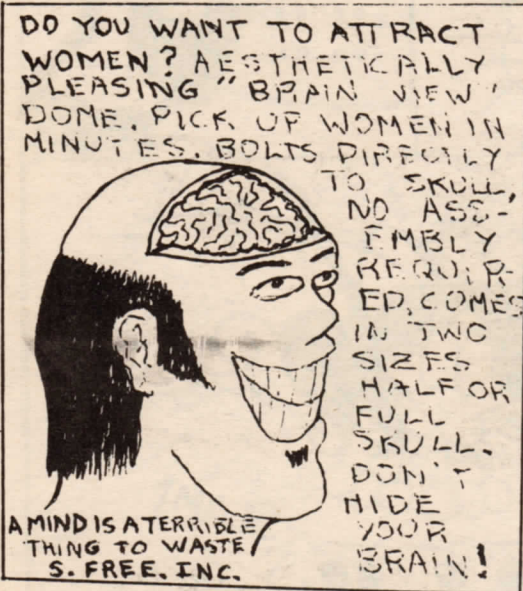 DO YOU WANT TO ATTRACT
WOMEN? AESTHETICALLY
PLEASING "BRAIN VIEW"
DOME. PICK UP WOMEN IN
MINUTES. BOLTS DIRECTLY
TO SKULL,
NO ASS-
EMBLY
REQUIR-
ED, COMES
IN TWO
SIZES
HALF OR
FULL
SKULL.
DON'T
HIDE
YOUR
BRAIN!
A MIND IS A TERRIBLE
THING TO WASTE
S. FREE. INC.